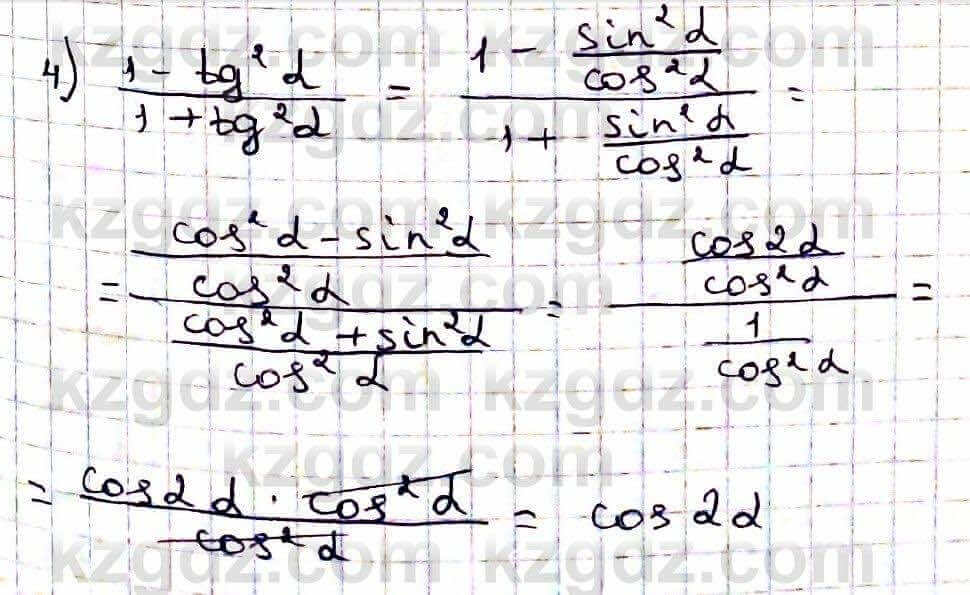 4) (1 - tg²α)/(1 + tg²α) = (1 - sin²α/cos²α)/(1 + sin²α/cos²α) =
= ((cos²α - sin²α)/cos²α)/((cos²α + sin²α)/cos²α) = (cos2α/cos²α)/(1/cos²α) =
= (cos2α · cos²α)/cos²α = cos2α
kzgdz.com kzgdz.com
kzgdz.com kzgdz.com
kzgdz.com kzgdz.com
kzgdz.com kzgdz.com
kzgdz.com kzgdz.com
kzgdz.com
kzgdz.com kzgdz.com